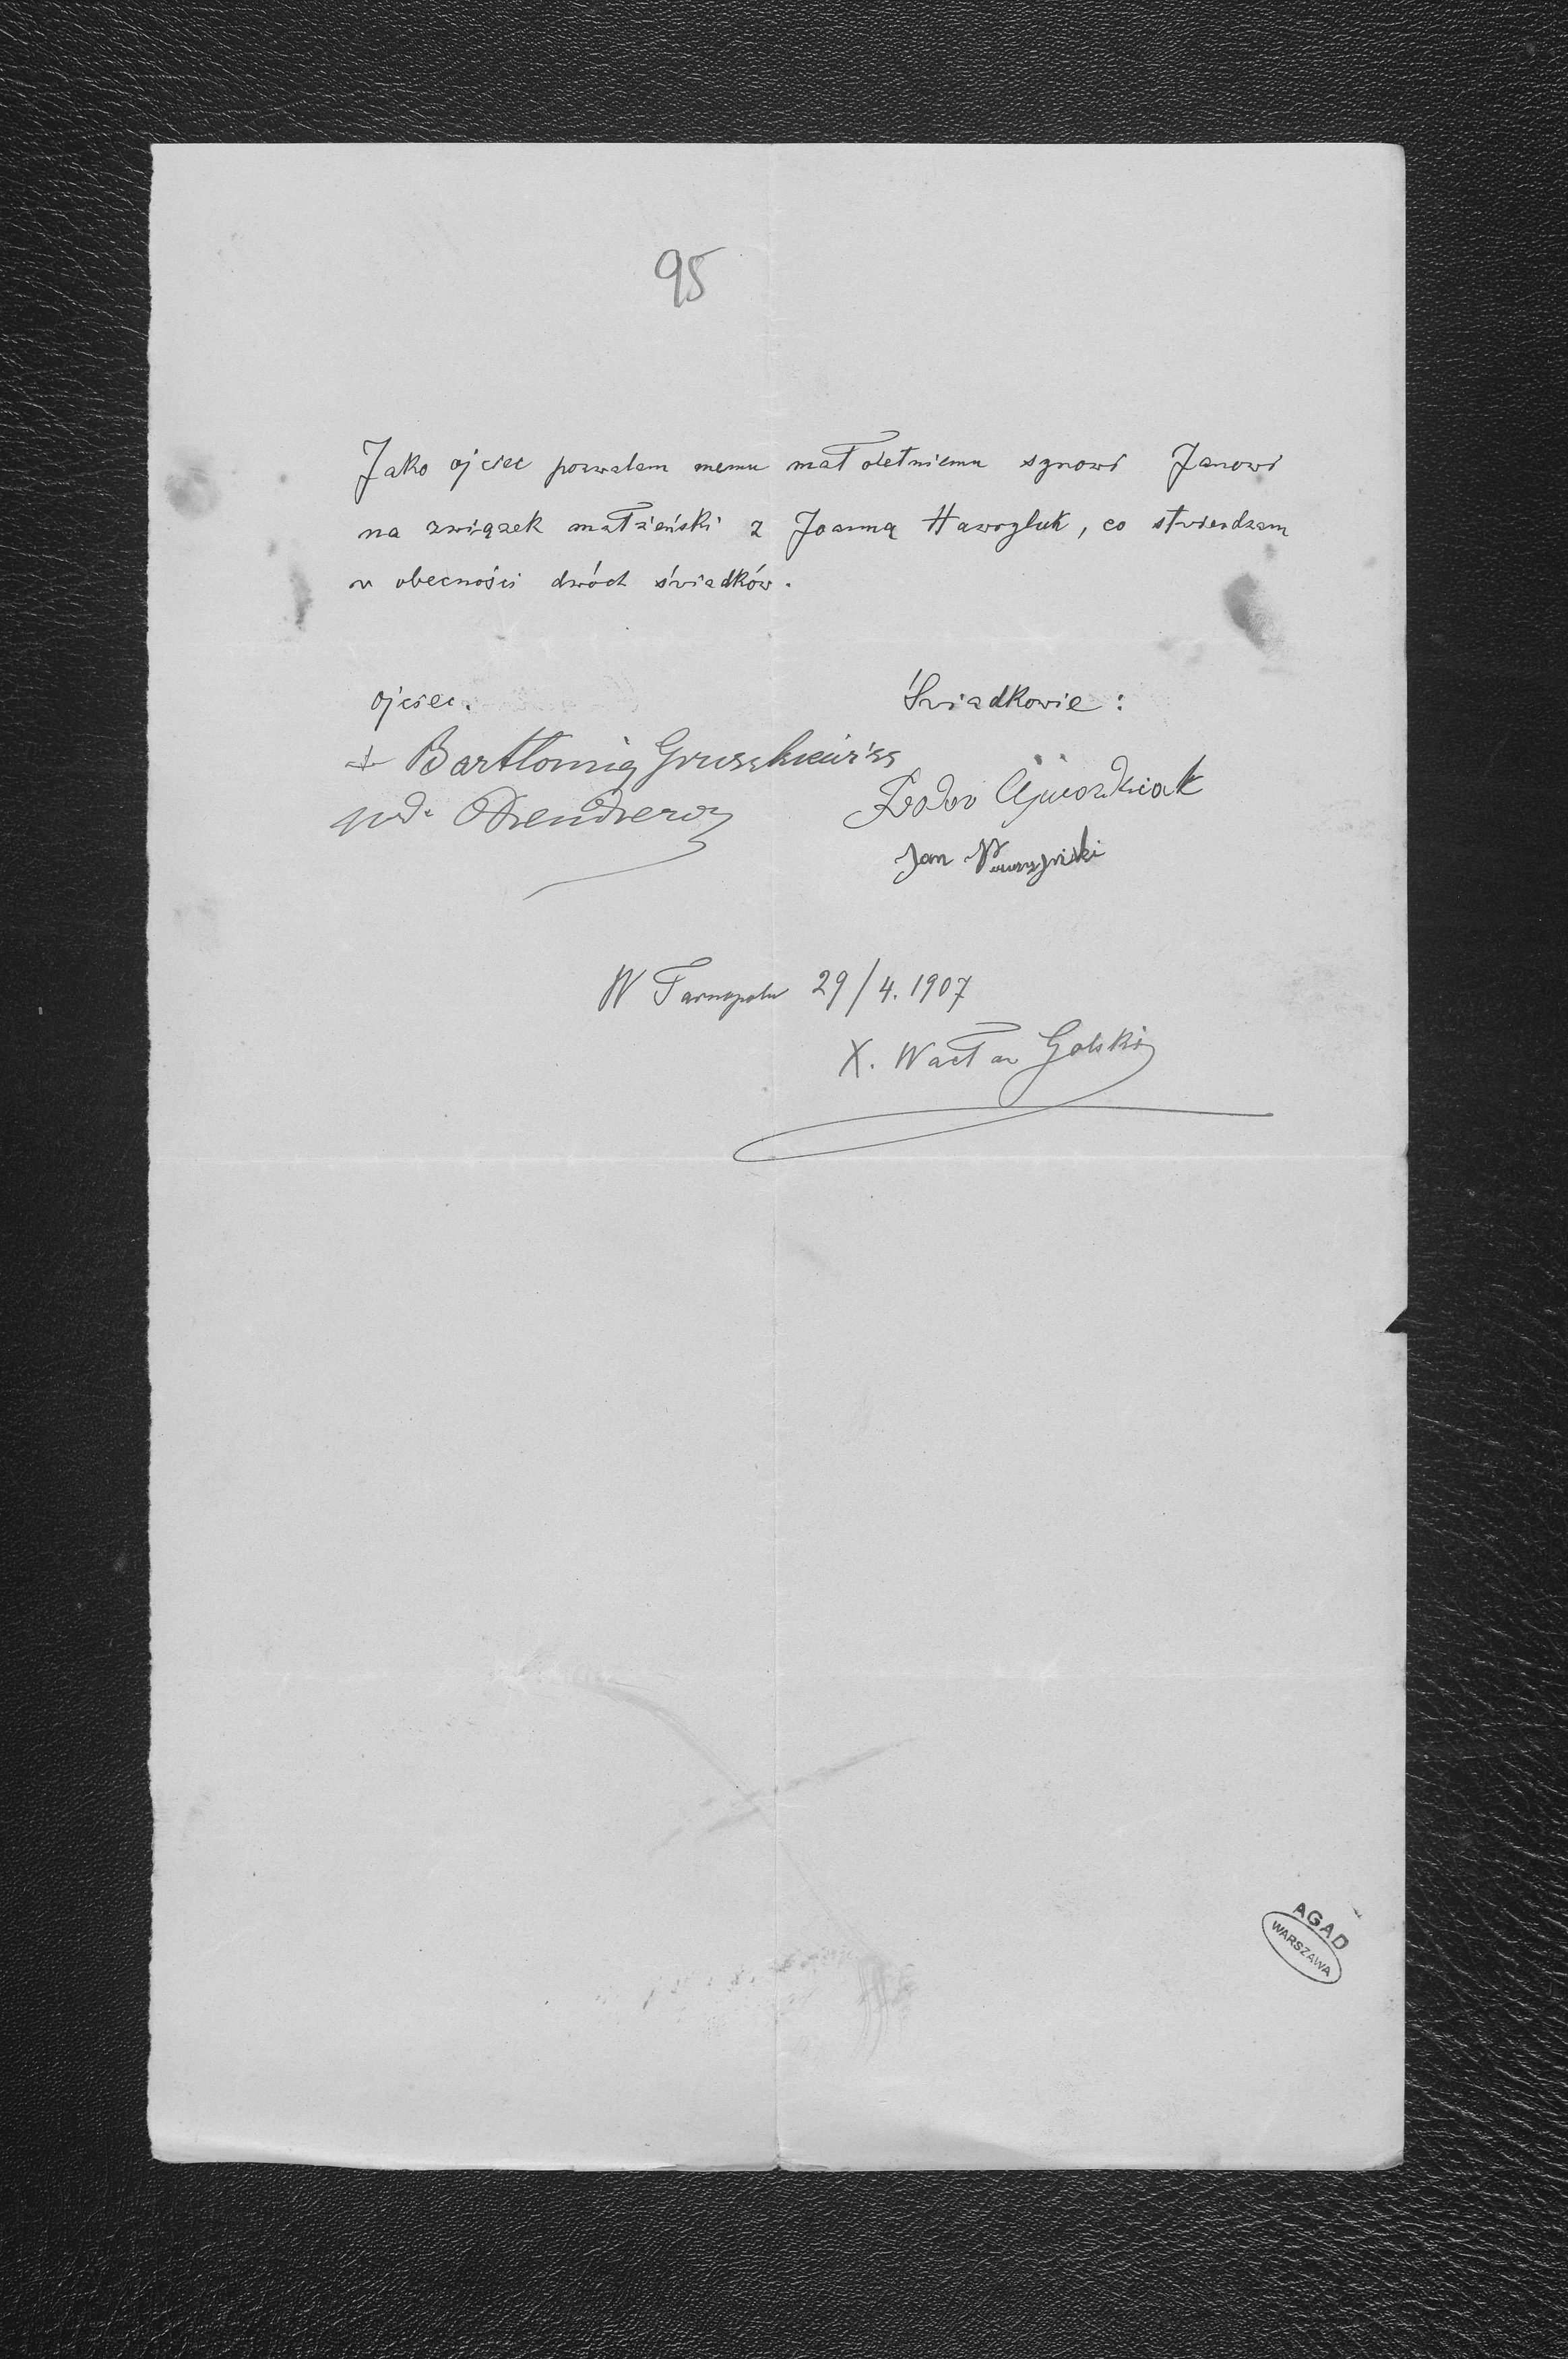 95
Jako ojciec pozwalam memu małoletniemu synowi Janowi
na związek małżeński z Joanną Hawryluk, co stwierdzam
w obecności dwóch świadków.
ojciec.
Świadkowie :
+ Bartłomiej Gruszkiewicz
pod.
Fedor Gwozdziak
Jan
W Tarnopolu 29/4. 1907
X. Wacław Golski
AGAD
WARSZAWA